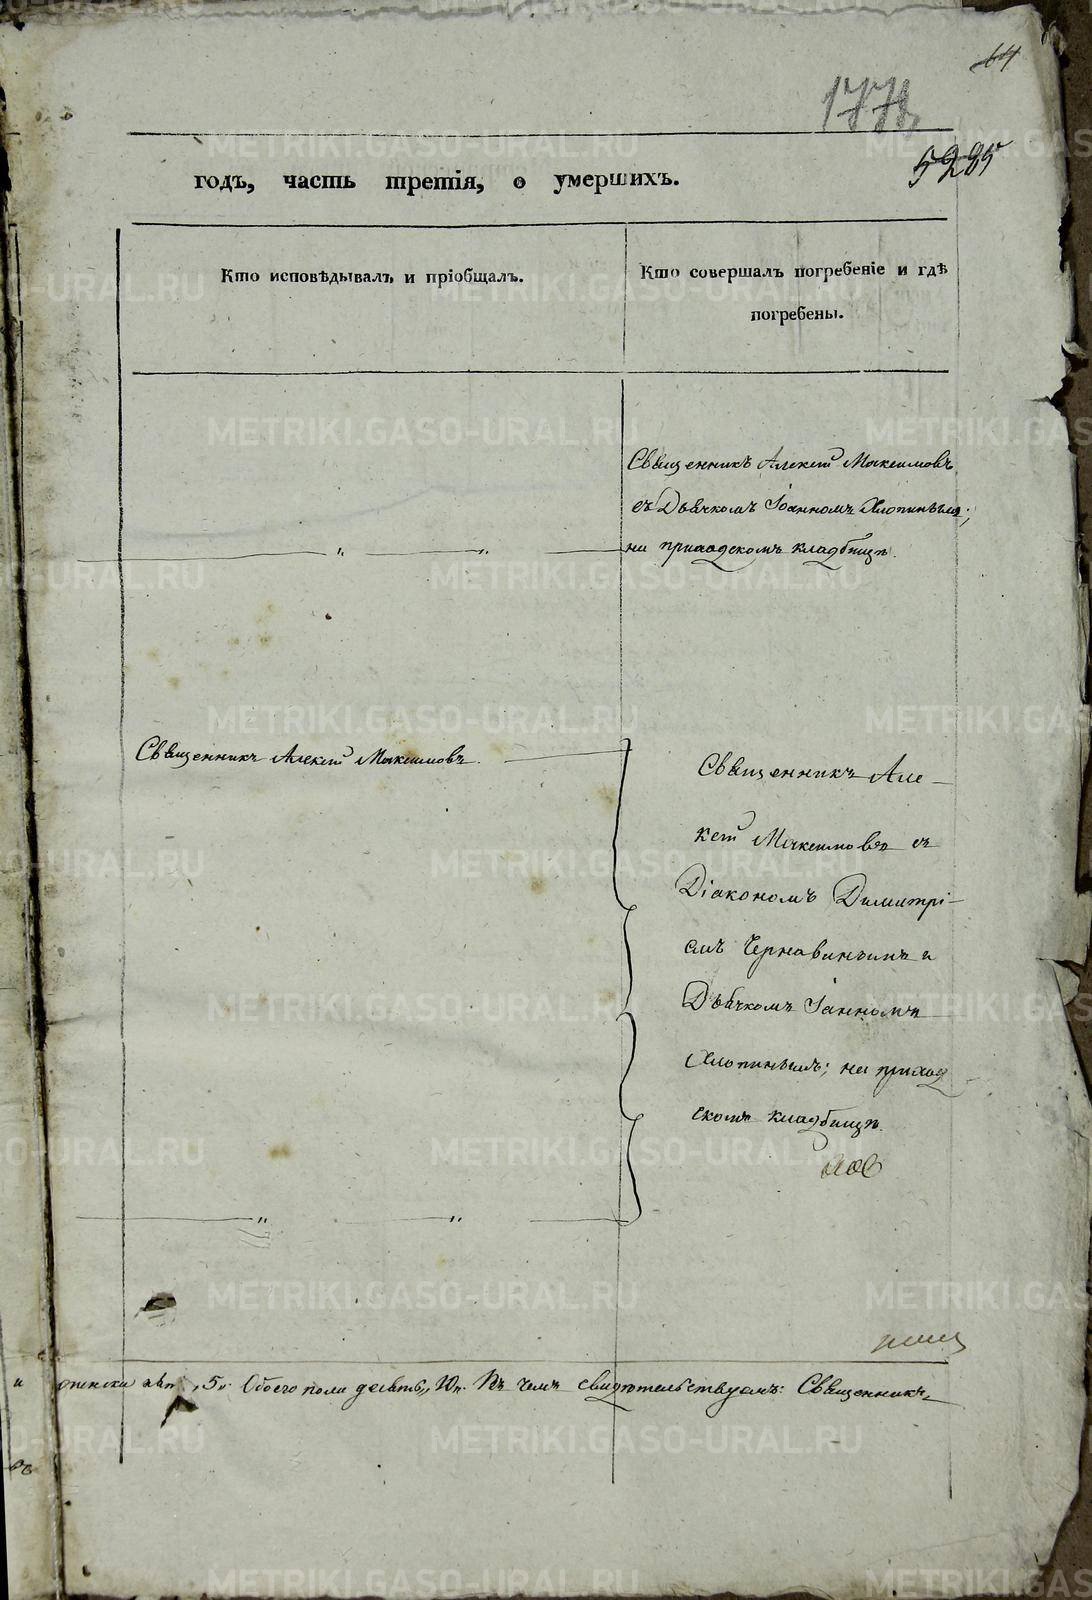 64
177
5285
годъ, часть третія, о умершихъ.
Кто исповѣдывалъ и пріобщалъ.
Кто совершалъ погребеніе и гдѣ
погребены.
Священникъ Алексей Максимовъ
съ Дьячкомъ Іоанномъ Хлопинымъ;
на приходскомъ кладбищѣ.
Священникъ Алексей Максимовъ
Священникъ Але-
ксей Максимовъ съ
Діакономъ Димитрі-
емъ Чернавинымъ и
Дьячкомъ Іанномъ
Хлопинымъ; на приход
скомъ кладбищѣ.
и женска 5. Обоего пола десять, 10. Въ чемъ свидѣтельствуемъ: Священникъ
METRIKI.GASO-URAL.RU